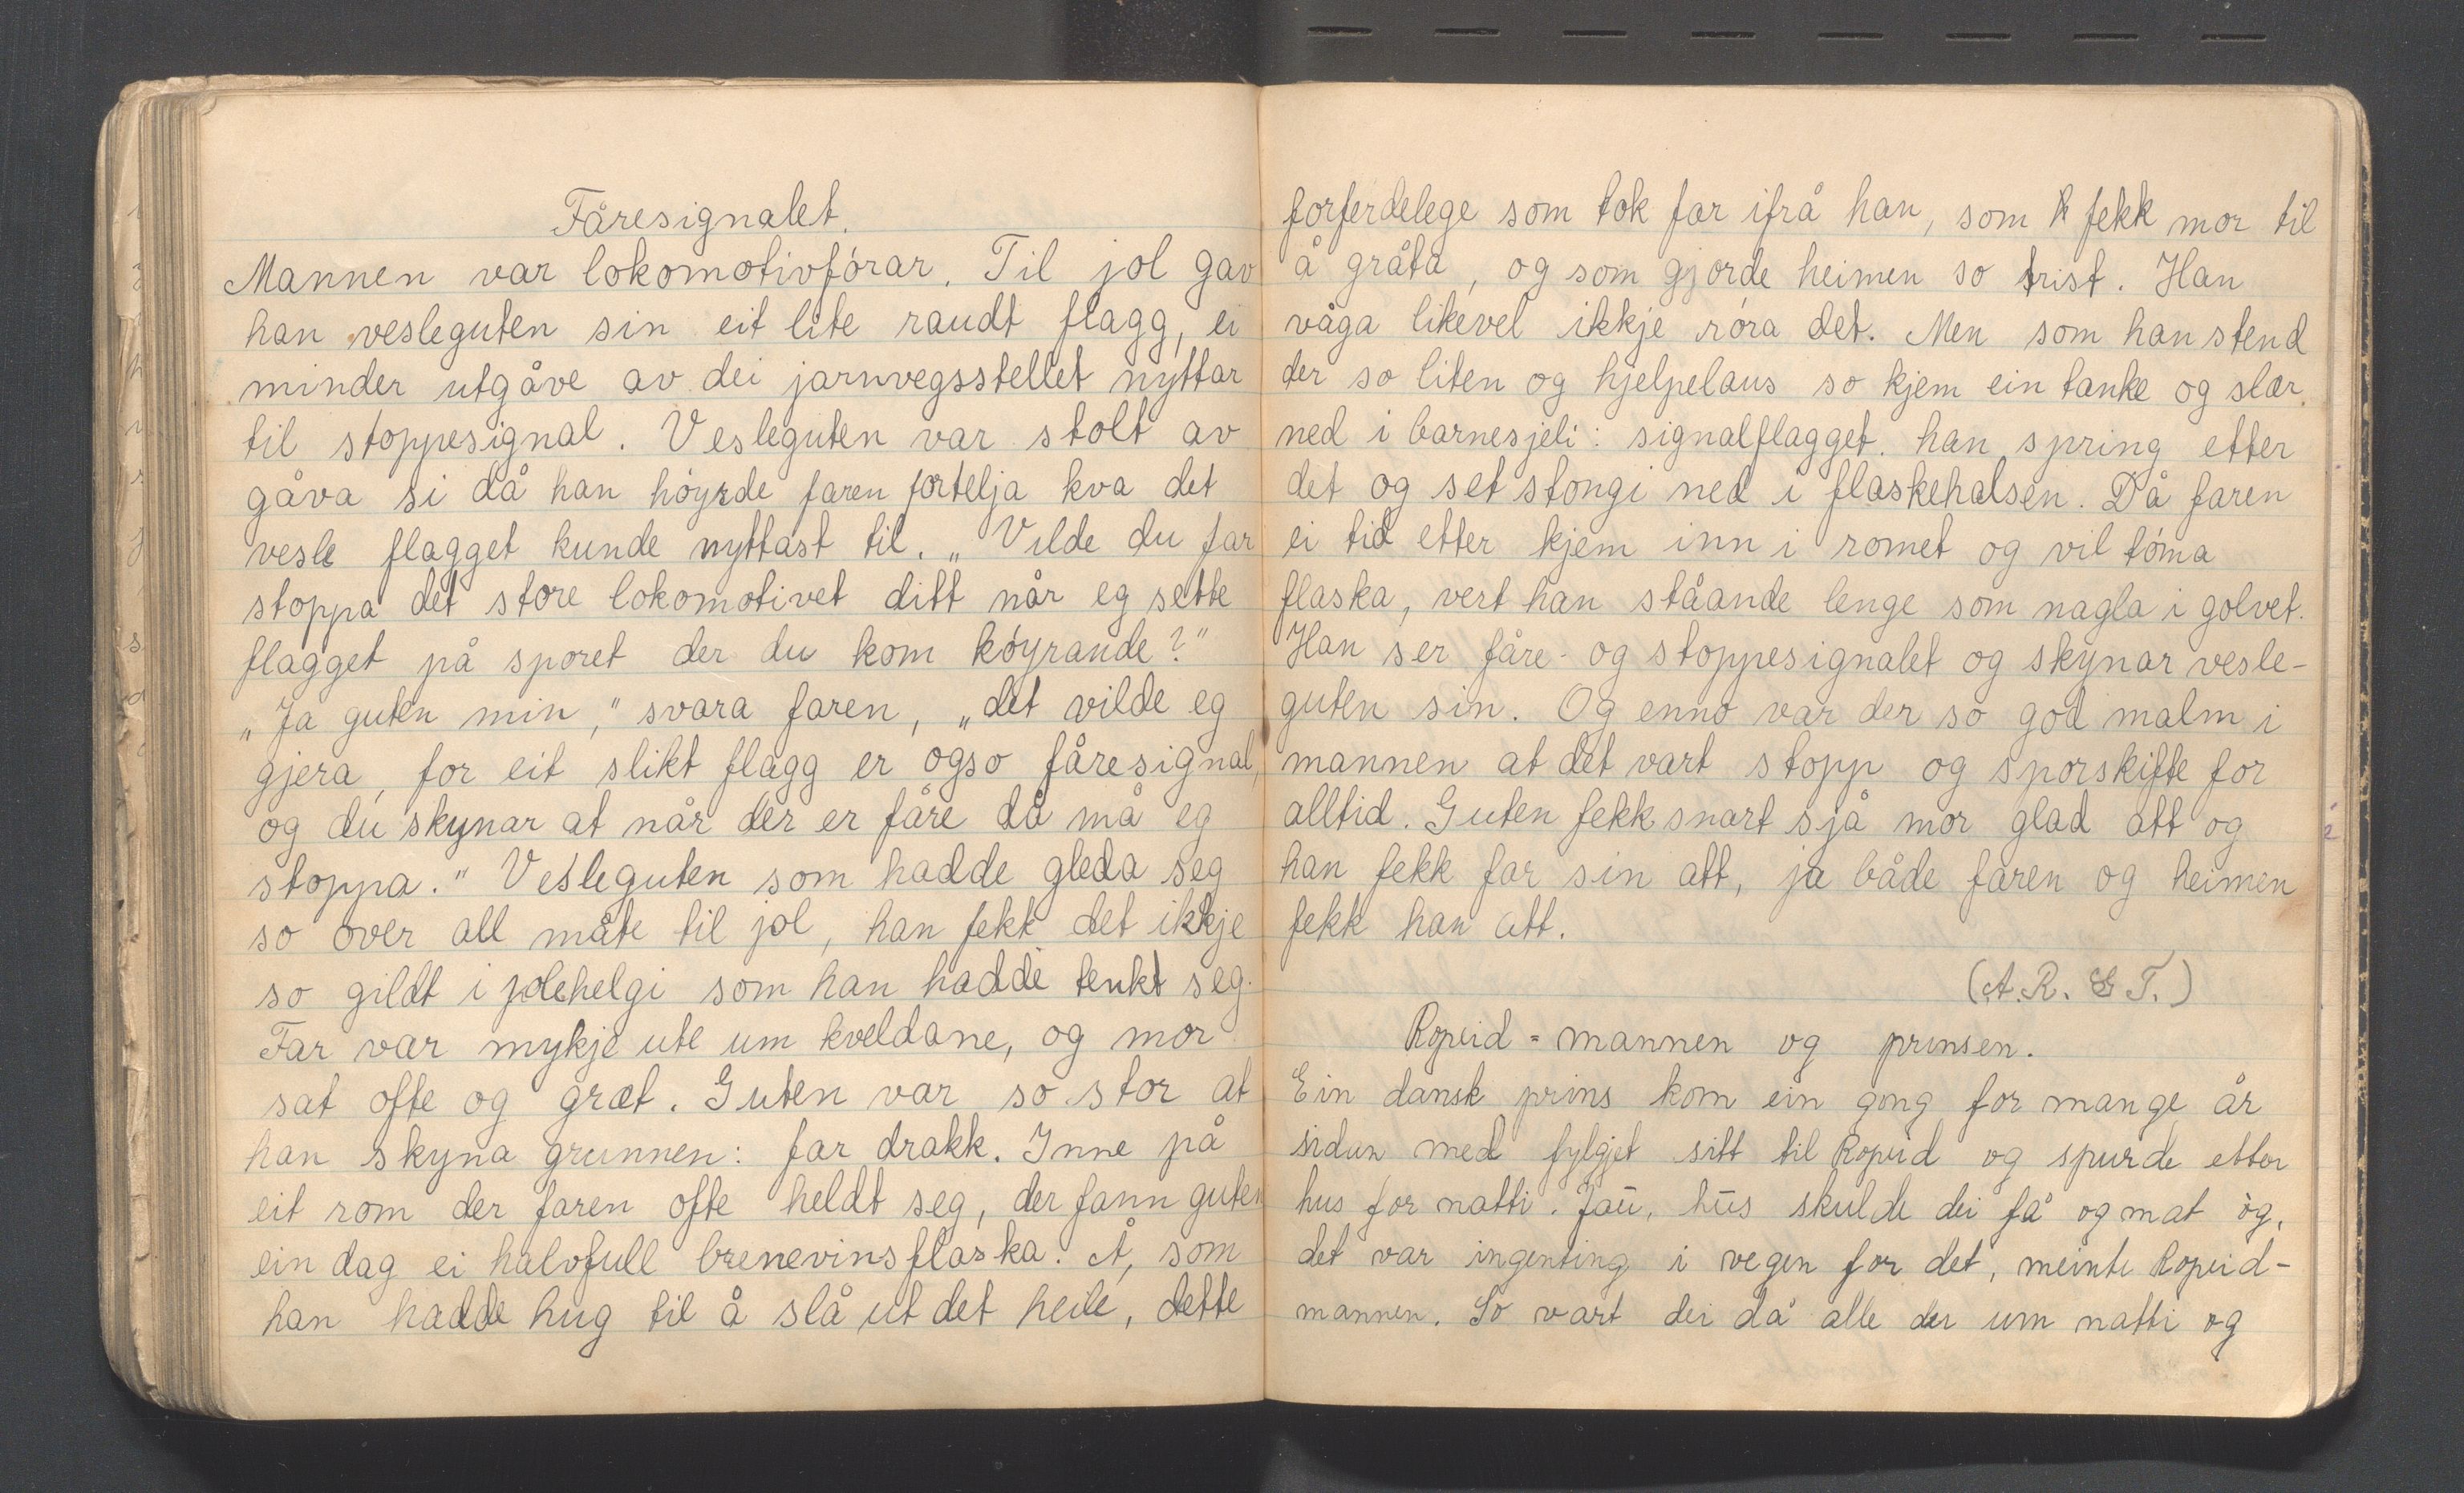 Fåresignalet.
Mannen var lokomotivfórar. Til jol gav
han vesleguten sin eit lite raudt flagg, ei
minder utgåve av dei jarnvegsstellet nyttar
til stoppesignal. Vesleguten var stolt av
gåva si då han høyrde faren fortelja kva det
vesle flagget kunde nyttast til. „Vilde du far
stoppa det store lokomotivet ditt når eg sette
flagget på sporet der du kom kóyrande?"
„Ja guten min," svara faren, „det vilde eg
gjera, for eit slikt flagg er ogso fåresignal,
og du skynar at når der er fåre då må eg
stoppa." Vesleguten som hadde gleda seg
so over all måte til jol, han fekk det ikkje
so gildt i jolehelgi som han hadde tenkt seg.
Far var mykje ute um kveldane, og mor
sat ofte og græt. Guten var so stor at
han skyna grunnen: far drakk. Inne på
eit rom der faren ofte heldt seg, der fann guten
ein dag ei halvfull brenevinsflaska. Å, som
han hadde hug til å slå ut det heile, dette
forferdelege som tok far ifrå han, som fekk mor til
å gråta, og som gjorde heimen so trist. Han
våga likevel ikkje róra det. Men som han stend
der so liten og hjelpelaus so kjem ein tanke og slær
ned i barnesjeli: signalflagget. han spring etter
det og set stongi ned i flaskehalsen. Då faren
ei tid etter kjem inn i romet og vil tóma
flaska, vert han ståande lenge som nagla i golvet.
Han ser fåre- og stoppesignalet og skynar vesle-
guten sin. Og enno var der so god malm i
mannen at det vart stopp og sporskifte for
alltid. Guten fekk snart sjå mor glad att og
han fekk far sin att, ja både faren og heimen
fekk han att.
(A.R. G T.)
Ropeid-mannen og prinsen.
Ein dansk prins kom ein gong for mange år
sidan med fylgjet sitt til Ropeid og spurde etter
hus for natti. Jau, hus skulde dei få og mat òg,
det var ingenting i vegen for det, meinte Ropeid-
mannen. So vart dei då alle der um natti og